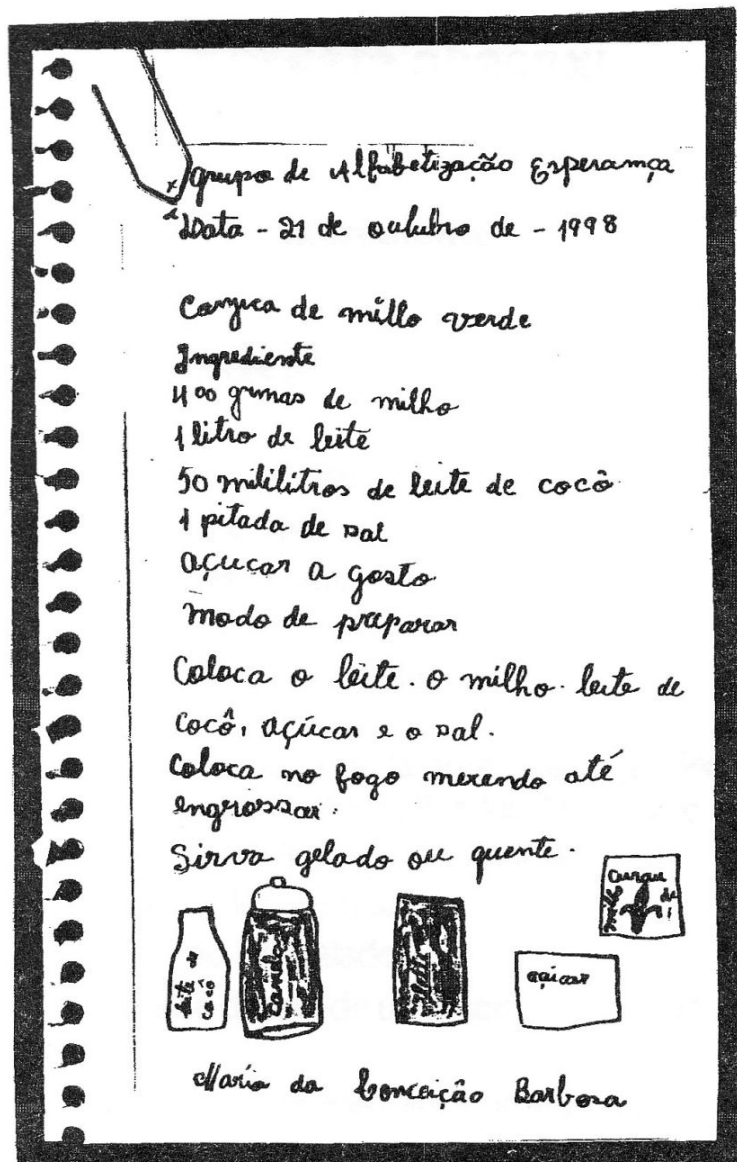 Grupo de Alfabetização Esperança
Data - 21 de outubro de - 1998
Canjica de millo verde
Ingrediente
400 gramas de milho
1 litro de leite
50 mililitros de leite de cocô
1 pitada de sal
açucar a gosto
modo de preparar
Coloca o leite. o milho. leite de
cocô, açúcar e o sal.
Coloca no fogo mexendo até
engrossar.
Sirva gelado ou quente.
leite de
cocô
canela
leite
açúcar
milho
de
Maria da Conceição Barbosa